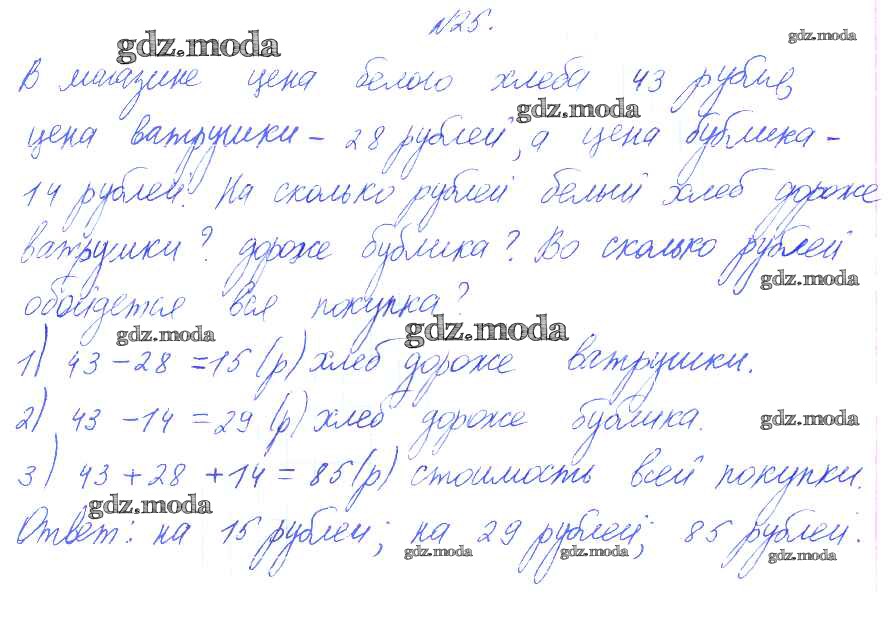 №25.
В магазине цена белого хлеба 43 рубля,
цена ватрушки – 28 рублей, а цена бублика –
14 рублей. На сколько рублей белый хлеб дороже
ватрушки? дороже бублика? Во сколько рублей
обойдется вся покупка?
1) 43 – 28 = 15 (р) хлеб дороже ватрушки.
2) 43 – 14 = 29 (р) хлеб дороже бублика.
3) 43 + 28 + 14 = 85 (р) стоимость всей покупки.
Ответ: на 15 рублей; на 29 рублей; 85 рублей.
gdz.moda
gdz.moda
gdz.moda
gdz.moda
gdz.moda
gdz.moda
gdz.moda
gdz.moda
gdz.moda
gdz.moda
gdz.moda